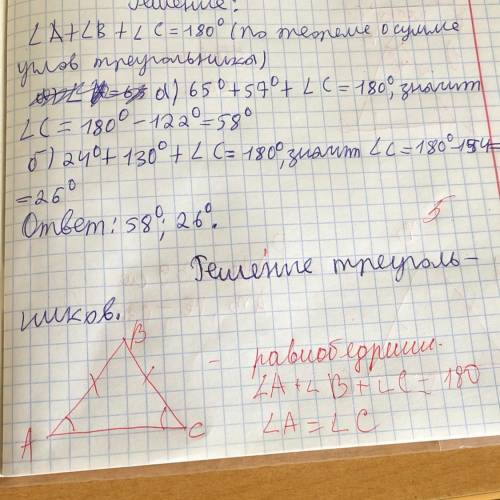 Решение:
∠A+∠B+∠C=180° (по теореме о сумме
углов треугольника)
а) 65°+57°+∠C=180°, значит
∠C=180°-122°=58°
б) 24°+130°+∠C=180°, значит ∠C=180°-154=
=26°
Ответ: 58°; 26°.
5
Решение треуголь-
ников.
B
- равнобедрини.
∠A+∠B+∠C=180
∠A=∠C
A
C